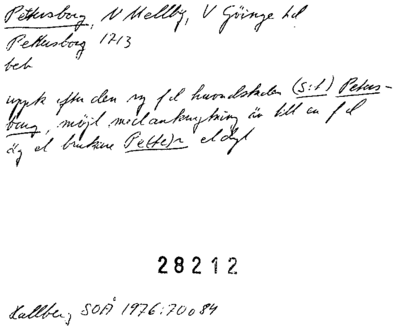 Pettersborg, N Mellby, V Göinge hd
Pettersborg 1713
beb
uppk efter den ry f d huvudstaden (S:t) Peters-
burg, möjl med anknytning även till en f d
äg el brukare Pe(tte)r eldyl
28212
Hallberg SOÅ 1976:70 o 84